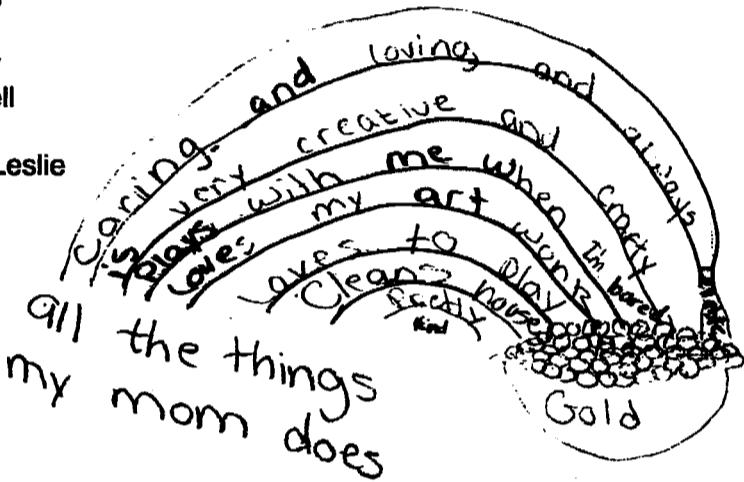 ell
Leslie
caring. and loving, and always
is very creative and crafty
plays with me when I'm bored
loves my art work
loves to play
Cleans house
Pretty
Kind
all the things
my mom does
Gold